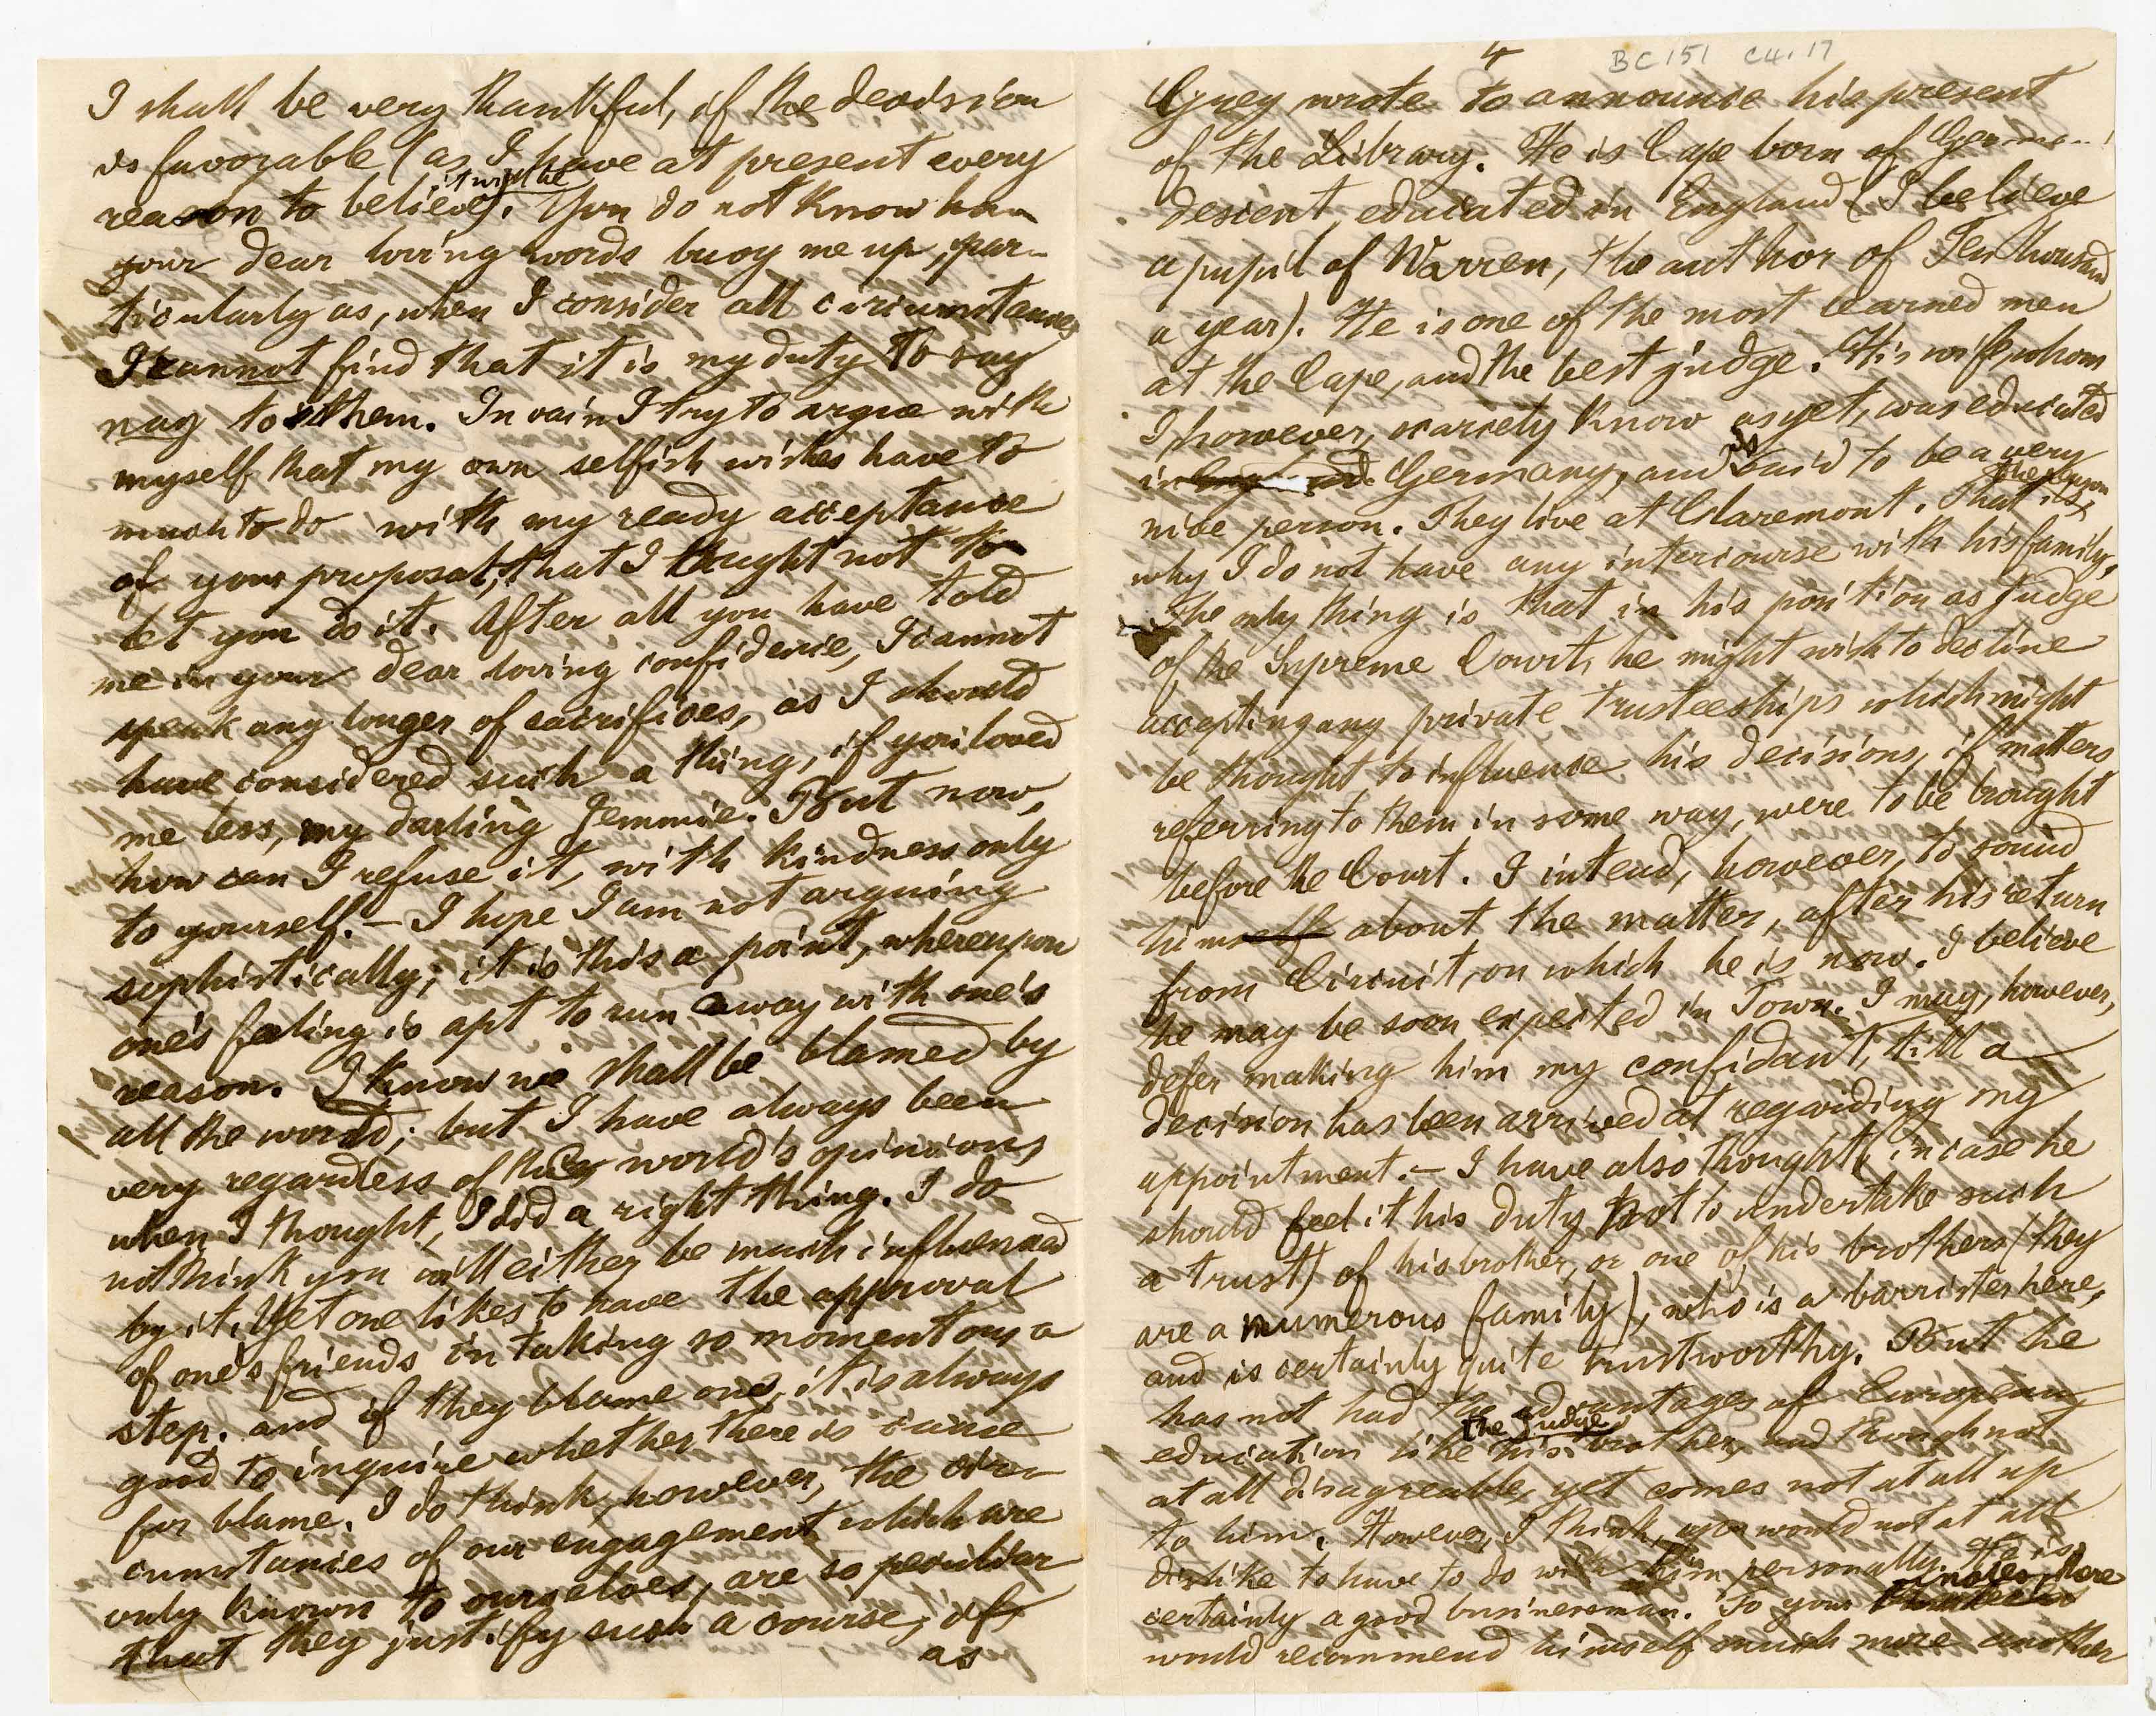 I shall be very thankful, if the decision
is favorable (as I have at present every
reason to believe it will be). You do not know how
your dear loving words buoy me up, par-
ticularly as, when I consider all circumstances
I cannot find that it is my duty to say
nay to them. In vain I try to argue with
myself that my own selfish wishes have to
much to do with my ready acceptance
of your proposal, that I ought not to
let you do it. After all you have told
me in your dear loving confidence, I cannot
speak any longer of sacrifices, as I should
have considered such a thing, if you loved
me less, my darling Jemmie. But now,
how can I refuse it, with kindness only
to yourself. – I hope I am not arguing
sophistically; it is this a point, whereupon
one's feeling is apt to run away with one's
reason. I know we shall be blamed by
all the world; but I have always been
very regardless of the world's opinions
when I thought, I did a right thing. I do
not think you will either be much influenced
by it. Yet one likes to have the approval
of one's friends in taking so momentous a
step. and if they blame one, it is always
good to inquire whether there is cause
for blame. I do think, however, the cir-
cumstances of our engagement which are
only known to ourselves, are so peculiar
that they justify such a course, if
as
4
BC 151 C4.17
Grey wrote to announce his present
of the Library. He is Cape born of
descent, educated in England (I believe
a pupil of Warren, the author of Ten thousand
a year). He is one of the most learned men
at the Cape, and the best judge. His wife whom
I, however, scarcely know as yet, was educated
in Germany, and is said to be a very
nice person. They live at Claremont. That is the reason
why I do not have any intercourse with his family.
The only thing is that in his position as Judge
of the Supreme Court, he might wish to decline
accepting any private trusteeships which might
be thought to influence his decisions, if matters
referring to them in some way, were to be brought
before the Court. I intend, however, to sound
him about the matter, after his return
from Circuit, on which he is now. I believe
he may be soon expected in Town. I may, however,
defer making him my confidant, till a
decision has been arrived at regarding my
appointment. – I have also thought (in case he
should feel it his duty not to undertake such
a trust) of his brother, or one of his brothers (they
are a numerous family), who is a barrister here,
and is certainly quite trustworthy. But he
has not had the advantages of European
education like his brother the Judge, and though not
at all disagreable, yet comes not at all up
to him. However, I think, you would not at all
dislike to have to do with him personally. He is
certainly a good businessman. To your
would recommend himself much more another